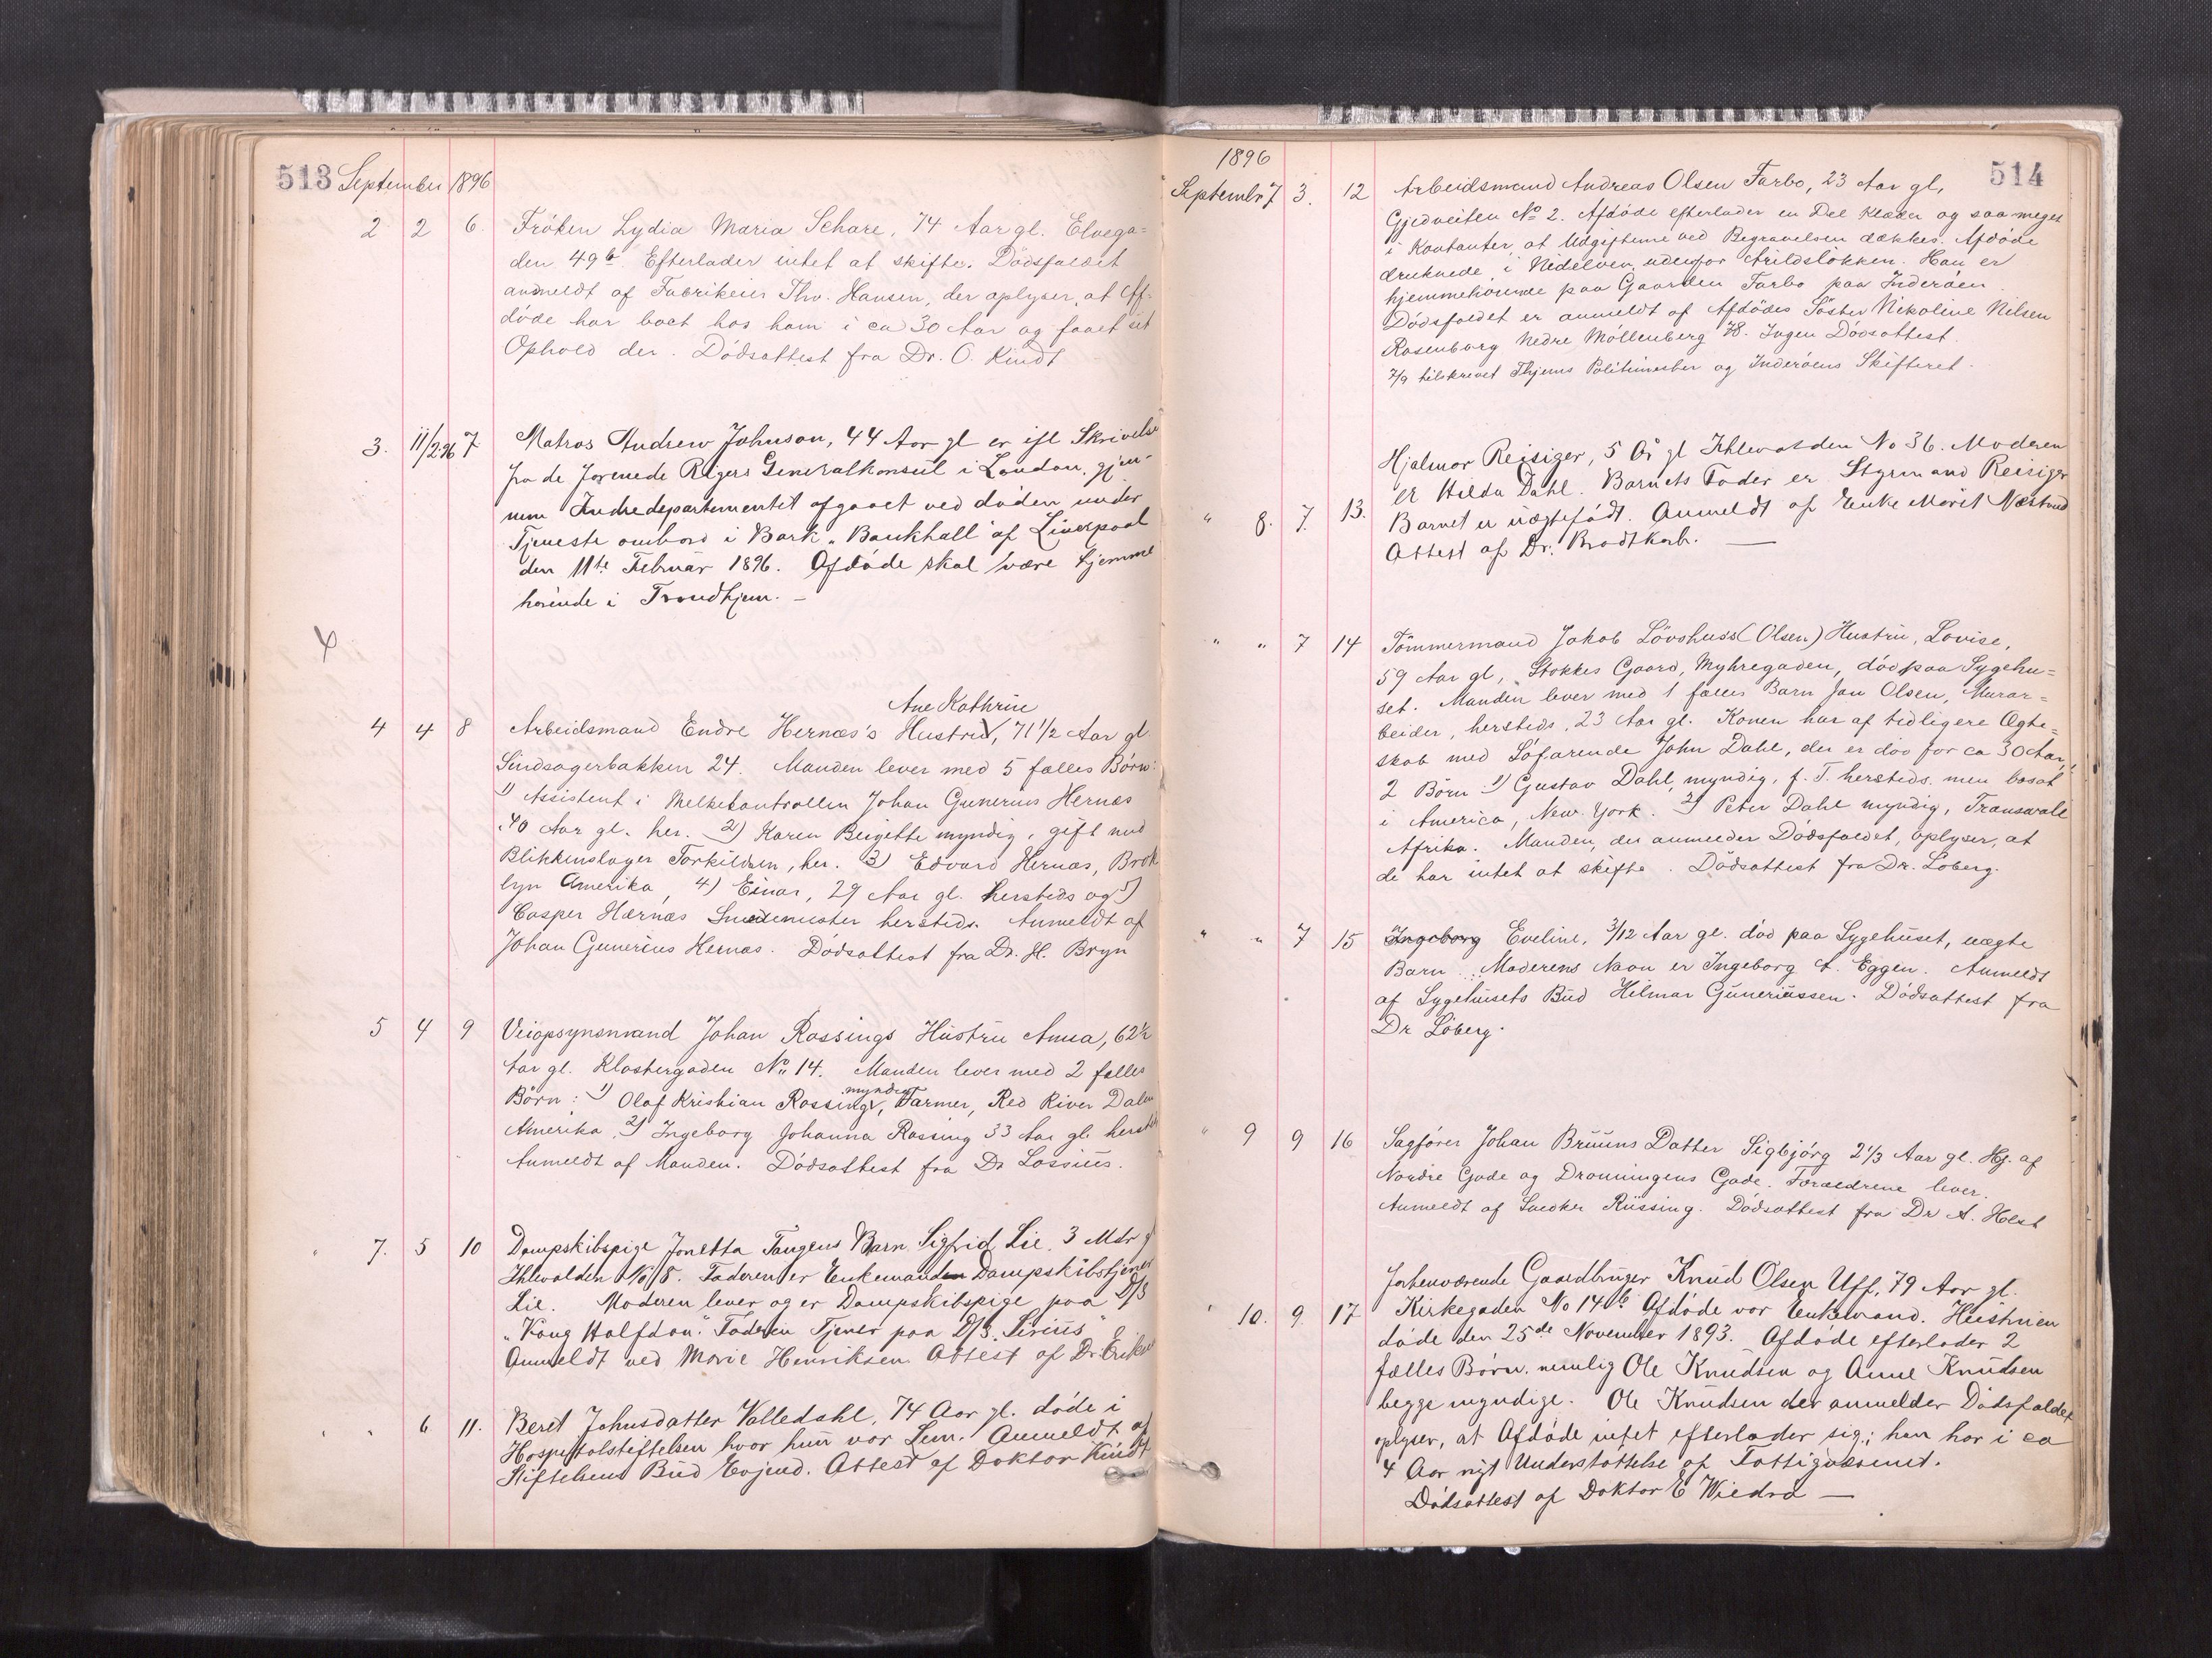 513 September 1896
2 2 6. Fröken Lydia Maria Schare, 74 Aar gl. Elvega=
den 49b. Efterlader intet at skifte. Dödsfaldet
anmeldt af Fabrikeier Thv. Hansen, der oplyser, at Af=
döde har boet hos ham i ca 30 Aar og faaet sit
Ophold der. Dödsattest fra Dr. O. Kindt
3. 11/2.96 7 Matros Andrew Johnson, 44 Aar gl er ifl Skrivelse
fra de forenede Rigers Generalkonsul i London, gjen-
nem Indredepartementet afgaaet ved döden under
Tjeneste ombord i Bark „Bankhall" af Liverpool
den 11te Februar 1896. Afdöde skal være hjemme
hörende i Trondhjem. —
Ane Kathrine
4 4 8 Arbeidsmand Endre Hernæs's Hustru, 71 1/2 Aar gl.
Sindsagerbakken 24. Manden lever med 5 fælles Börn:
1) Assistent i Melkekontrollen Johan Gunerius Hernæs
40 Aar gl. her. 2) Karen Bergette myndig, gift med
Blikkenslager Torkildsen, her. 3) Edvard Hernæs, Brok
lyn Amerika, 4) Einar, 29 Aar gl. hersteds og 5)
Casper Hærnæs Smedemester hersteds. Anmeldt af
Johan Gunerius Hernæs. Dödsattest fra Dr. H. Bryn
5 4 9 Veiopsynsmand Johan Rossings Hustru Anna, 62 1/2
Aar gl. Klostergaden No 14. Manden lever med 2 fælles
Börn: 1) Olaf Kristian Rossing, myndig, Farmer, Red River Dalen
Amerika, 2) Ingeborg Johanna Rossing 33 Aar gl. hersteds
Anmeldt af Manden. Dödsattest fra Dr Lossius.
" 7. 5 10 Dampskibspige Jonetta Tangens Barn Sigfrid Lie, 3 Mdr g
Ihlevolden No 8. Faderen er Enkemand Dampskibstjener
Lie. Moderen lever og er Dampskibspige paa D/S
„Kong Halfdan". Faderen Tjener paa D/S. Sirius"
Anmeldt ved Marie Henriksen. Attest af Dr.
" " 6 11. Beret Johnsdatter Valledahl, 74 Aar gl. döde i
Hospitalstiftelsen hvor hun var Lem. Anmeldt af
Stiftelsens Bud Evjend. Attest af Doktor Kindt
1896 514
Septembr 7 3. 12 Arbeidsmand Andreas Olsen Farbo, 23 Aar gl,
Gjedveiten No 2. Afdöde efterlader en Del Klæder og saa meget
i Kontanter, at Udgifterne ved Begravelsen dækkes. Afdöde
druknede i Nidelven udenfor Arildslökken. Han er
hjemmehörende paa Gaarden Farbo paa Inderöen.
Dödsfaldet er anmeldt af Afdödes Söster Nikoline Nilsen
Rosenborg Nedre Möllenberg 78. Ingen Dödsattest.
7/9 tilskrevet Thjems Politimester og Inderöens Skifteret.
" 8. 7. 13. Hjalmar Reisiger, 5 År gl Ihlevolden No 36. Moderen
er Hilda Dahl. Barnets Fader er Styrmand Reisiger
Barnet er uægtefödt. Anmeldt af Enke Marit Næstvud
Attest af Dr. Brodtkorb. —
" " 7 14 Tömmermand Jakob Lövshuss (Olsen) Hustru, Lovise,
59 Aar gl, Stokkes Gaard, Myhregaden, död paa Sygehu=
set. Manden lever med 1 fælles Barn Jan Olsen, Murar=
beider, hersteds, 23 Aar gl. Konen har af tidligere Ægte=
skab med Söfarende John Dahl, der er död for ca 30 Aar,
2 Börn 1) Gustav Dahl, myndig, f. T. hersteds. men bosat
i America, New-York. 2) Peter Dahl myndig, Transvale
Afrika. Manden, der anmelder Dödsfaldet, oplyser, at
de har intet at skifte. Dödsattest fra Dr. Löberg.
" " 7 15 Ingeborg Eveline, 3/12 Aar gl. död paa Sygehuset, uægte
Barn. Moderens Navn er Ingeborg A. Eggen. Anmeldt
af Sygehusets Bud Hilmar Guneriussen. Dödsattest fra
Dr Löberg.
" 9 9 16 Sagförer Johan Bruuns Datter Sigbjörg 2 1/3 Aar gl. Hj. af
Nordre Gade og Dronningens Gade. Forældrene lever.
Anmeldt af Snedker Rüssing. Dödsattest fra Dr A. Holst
" 10. 9. 17 Forhenværende Gaardbruger Knud Olsen Uff, 79 Aar gl.
Kirkegaden No 14b. Afdöde var Enkemand. Hustruen
döde den 25de November 1893. Afdöde efterlader 2
fælles Börn, nemlig Ole Knudsen og Anne Knudsen
begge myndige. Ole Knudsen der anmelder Dödsfaldet
oplyser, at Afdöde intet efterlader sig; han har i ca
4 Aar nydt Understöttelse af Fattigvæsenet.
Dödsattest af Doktor E Wiedrd —